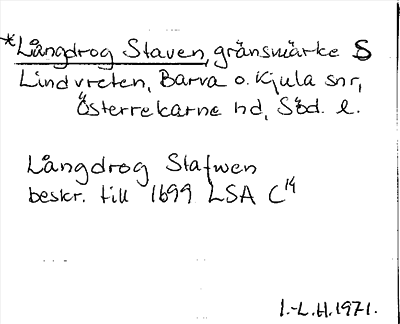 *Långdrog Staven, gränsmärke S
Lindvreten, Barva o. Kjula snr,
Österrekarne hd, Söd. l.
Långdrog Stafwen
beskr. till 1699 LSA C14
I.-L.H. 1971.